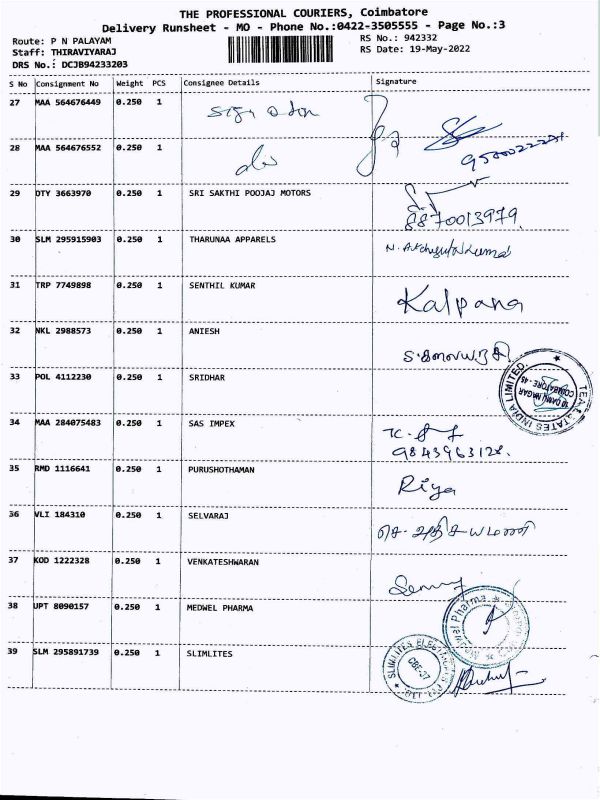 THE PROFESSIONAL COURIERS, Coimbatore
Delivery Runsheet - MO - Phone No.:0422-3505555 - Page No.:3
Route: P N PALAYAM
RS No.: 942332
Staff: THIRAVIYARAJ
RS Date: 19-May-2022
DRS No.: DCJB94233203
S No Consignment No Weight PCS Consignee Details Signature
27 MAA 564676449 0.250 1
28 MAA 564676552 0.250 1
29 DTY 3663970 0.250 1 SRI SAKTHI POOJAJ MOTORS
8870013979
30 SLM 295915903 0.250 1 THARUNAA APPARELS
31 TRP 7749898 0.250 1 SENTHIL KUMAR Kalpana
32 NKL 2988573 0.250 1 ANIESH
33 POL 4112230 0.250 1 SRIDHAR
34 MAA 284075483 0.250 1 SAS IMPEX
9843963128.
35 RMD 1116641 0.250 1 PURUSHOTHAMAN Riya
36 VLI 184310 0.250 1 SELVARAJ
37 KOD 1222328 0.250 1 VENKATESHWARAN
38 UPT 8090157 0.250 1 MEDWEL PHARMA
39 SLM 295891739 0.250 1 SLIMLITES
CBE-37